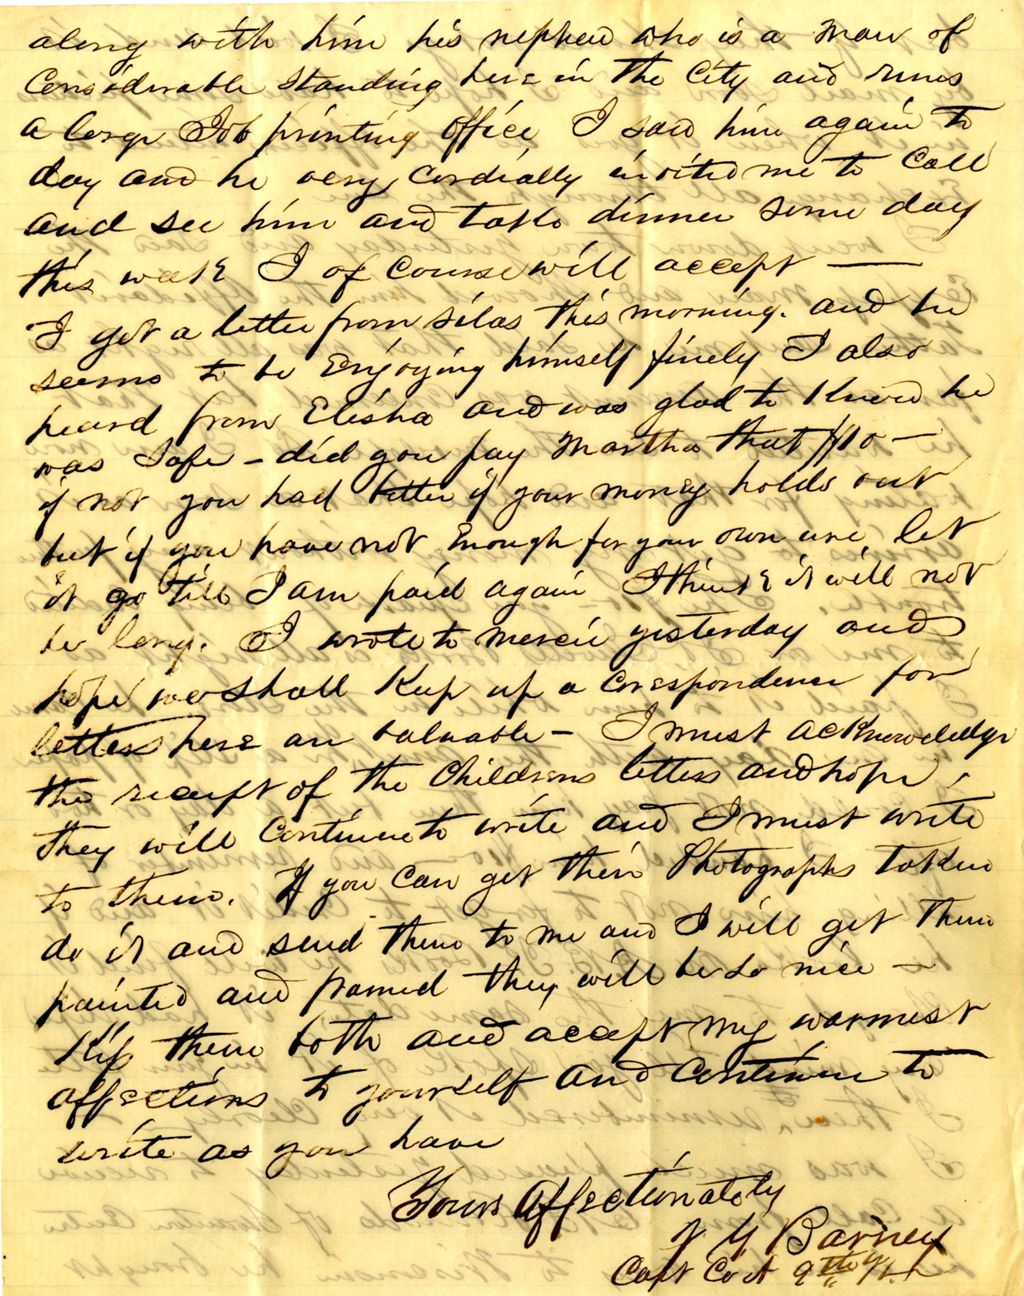 along with him his nephew who is a man of
Considerable Standing here in the City and runs
a large Job printing office, I saw him again to
day and he very Cordially invited me to Call
and see him and take dinner some day
this week I of course will accept —
I got a letter from Silas this morning. and he
seems to be Enjoying himself finely I also
heard from Elisha and was glad to Know he
was Safe – did you pay Martha that $10 –
if not you had better if your money holds out
but if you have not Enough for your own use let
it go till I am paid again I think it will not
be long. I wrote to Mercie yesterday and
hope we shall Keep up a Corespondence for
letters here are valuable – I must acknowledge
the receipt of the Childrens letters and hope
they will Continue to write and I must write
to them. If you can get their Photographs taken
do it and send them to me and I will get them
painted and framed they will be so nice –
Kiss them both and accept my warmest
affections to yourself and Continue to
write as you have
Yours Affectionately
Barney
Capt Co A 9th Vt